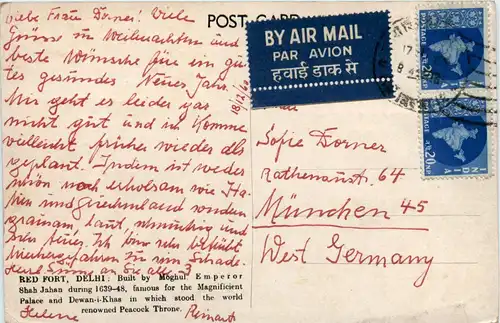 POST CARD
BY AIR MAIL
PAR AVION
हवाई डाक से
INDIA
POSTAGE
20
INDIA
POSTAGE
20
18/12/6
Liebe Frau Dorner! Viele
Grüsse zu Weihnachten und
beste Wünsche für ein gu-
tes gesundes Neues Jahr.
Mir geht es leider gar
nicht gut und ich komme
vielleicht früher wieder als
geplant. Indien ist weder
schön noch erholsam wie Ita-
lien und Griechenland sondern
grausam laut, schmutzig und
sehr teuer. Ich bin sehr
Schade.
Sie alle
Helene
Sofie Dorner
Rathenaustr. 64
München 45
West Germany
RED FORT, DELHI: Built by Moghul Emperor
Shah Jahan during 1639-48, famous for the Magnificient
Palace and Dewan-i-Khas in which stood the world
renowned Peacock Throne.